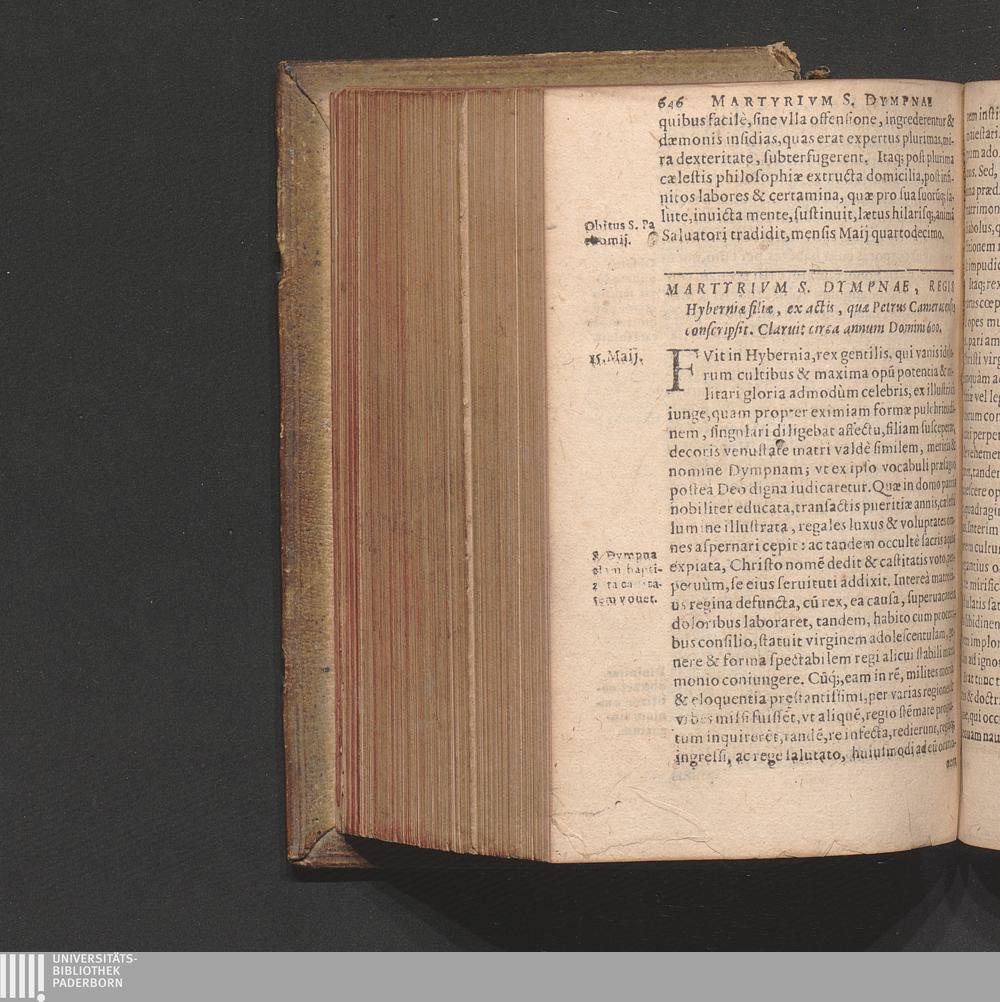 646 MARTYRIVM S. DYMPNAE
quibus facilè, sine vlla offensione, ingrederentur &
dæmonis insidias, quas erat expertus plurimas, mi-
ra dexteritate, subterfugerent. Itaq; post plurima
cælestis philosophiæ extructa domicilia, post infi-
nitos labores & certamina, quæ pro sua suorūq; sa-
lute, inuicta mente, sustinuit, lætus hilarisq;, animā
Saluatori tradidit, mensis Maij quartodecimo.
Obitus S. Pa
chomij.
MARTYRIVM S. DYMPNAE, REGIS
Hyberniæ filiæ, ex actis, quæ Petrus Cameracensis
conscripsit. Claruit circa annum Domini 600.
15. Maij.
FVit in Hybernia, rex gentilis, qui vanis idolo-
rum cultibus & maxima opū potentia & mi-
litari gloria admodùm celebris, ex illustri
iunge, quam propter eximiam formæ pulchritudi-
nem, singulari diligebat affectu, filiam susceperat,
decoris venustate matri valdè similem, meritis &
nomine Dympnam; vt ex ipso vocabuli præsagio
postea Deo digna iudicaretur. Quæ in domo patris
nobiliter educata, transactis pueritiæ annis, cælesti
lumine illustrata, regales luxus & voluptates om-
nes aspernari cepit: ac tandem occultè sacris aquis
expiata, Christo nomē dedit & castitatis voto, per-
petuùm, se eius seruituti addixit. Intereà matre
us regina defuncta, cū rex, ea causa, superuacaneis
doloribus laboraret, tandem, habito cum proceri-
bus consilio, statuit virginem adolescentulam, ge-
nere & forma spectabilem regi alicui stabili matri-
monio coniungere. Cūq;, eam in rē, milites
& eloquentia pręstantissimi, per varias regiones &
vrbes missi fuissēt, vt aliquē, regio stēmate progna-
tum inquirerēt, tandē, re infecta, redierunt,
ingressi, ac rege salutato, huiusmodi ad eū oratio-
nem
S. Dympna
clam bapti-
zata casti ta-
tem vouet.
UNIVERSITÄTS-
BIBLIOTHEK
PADERBORN